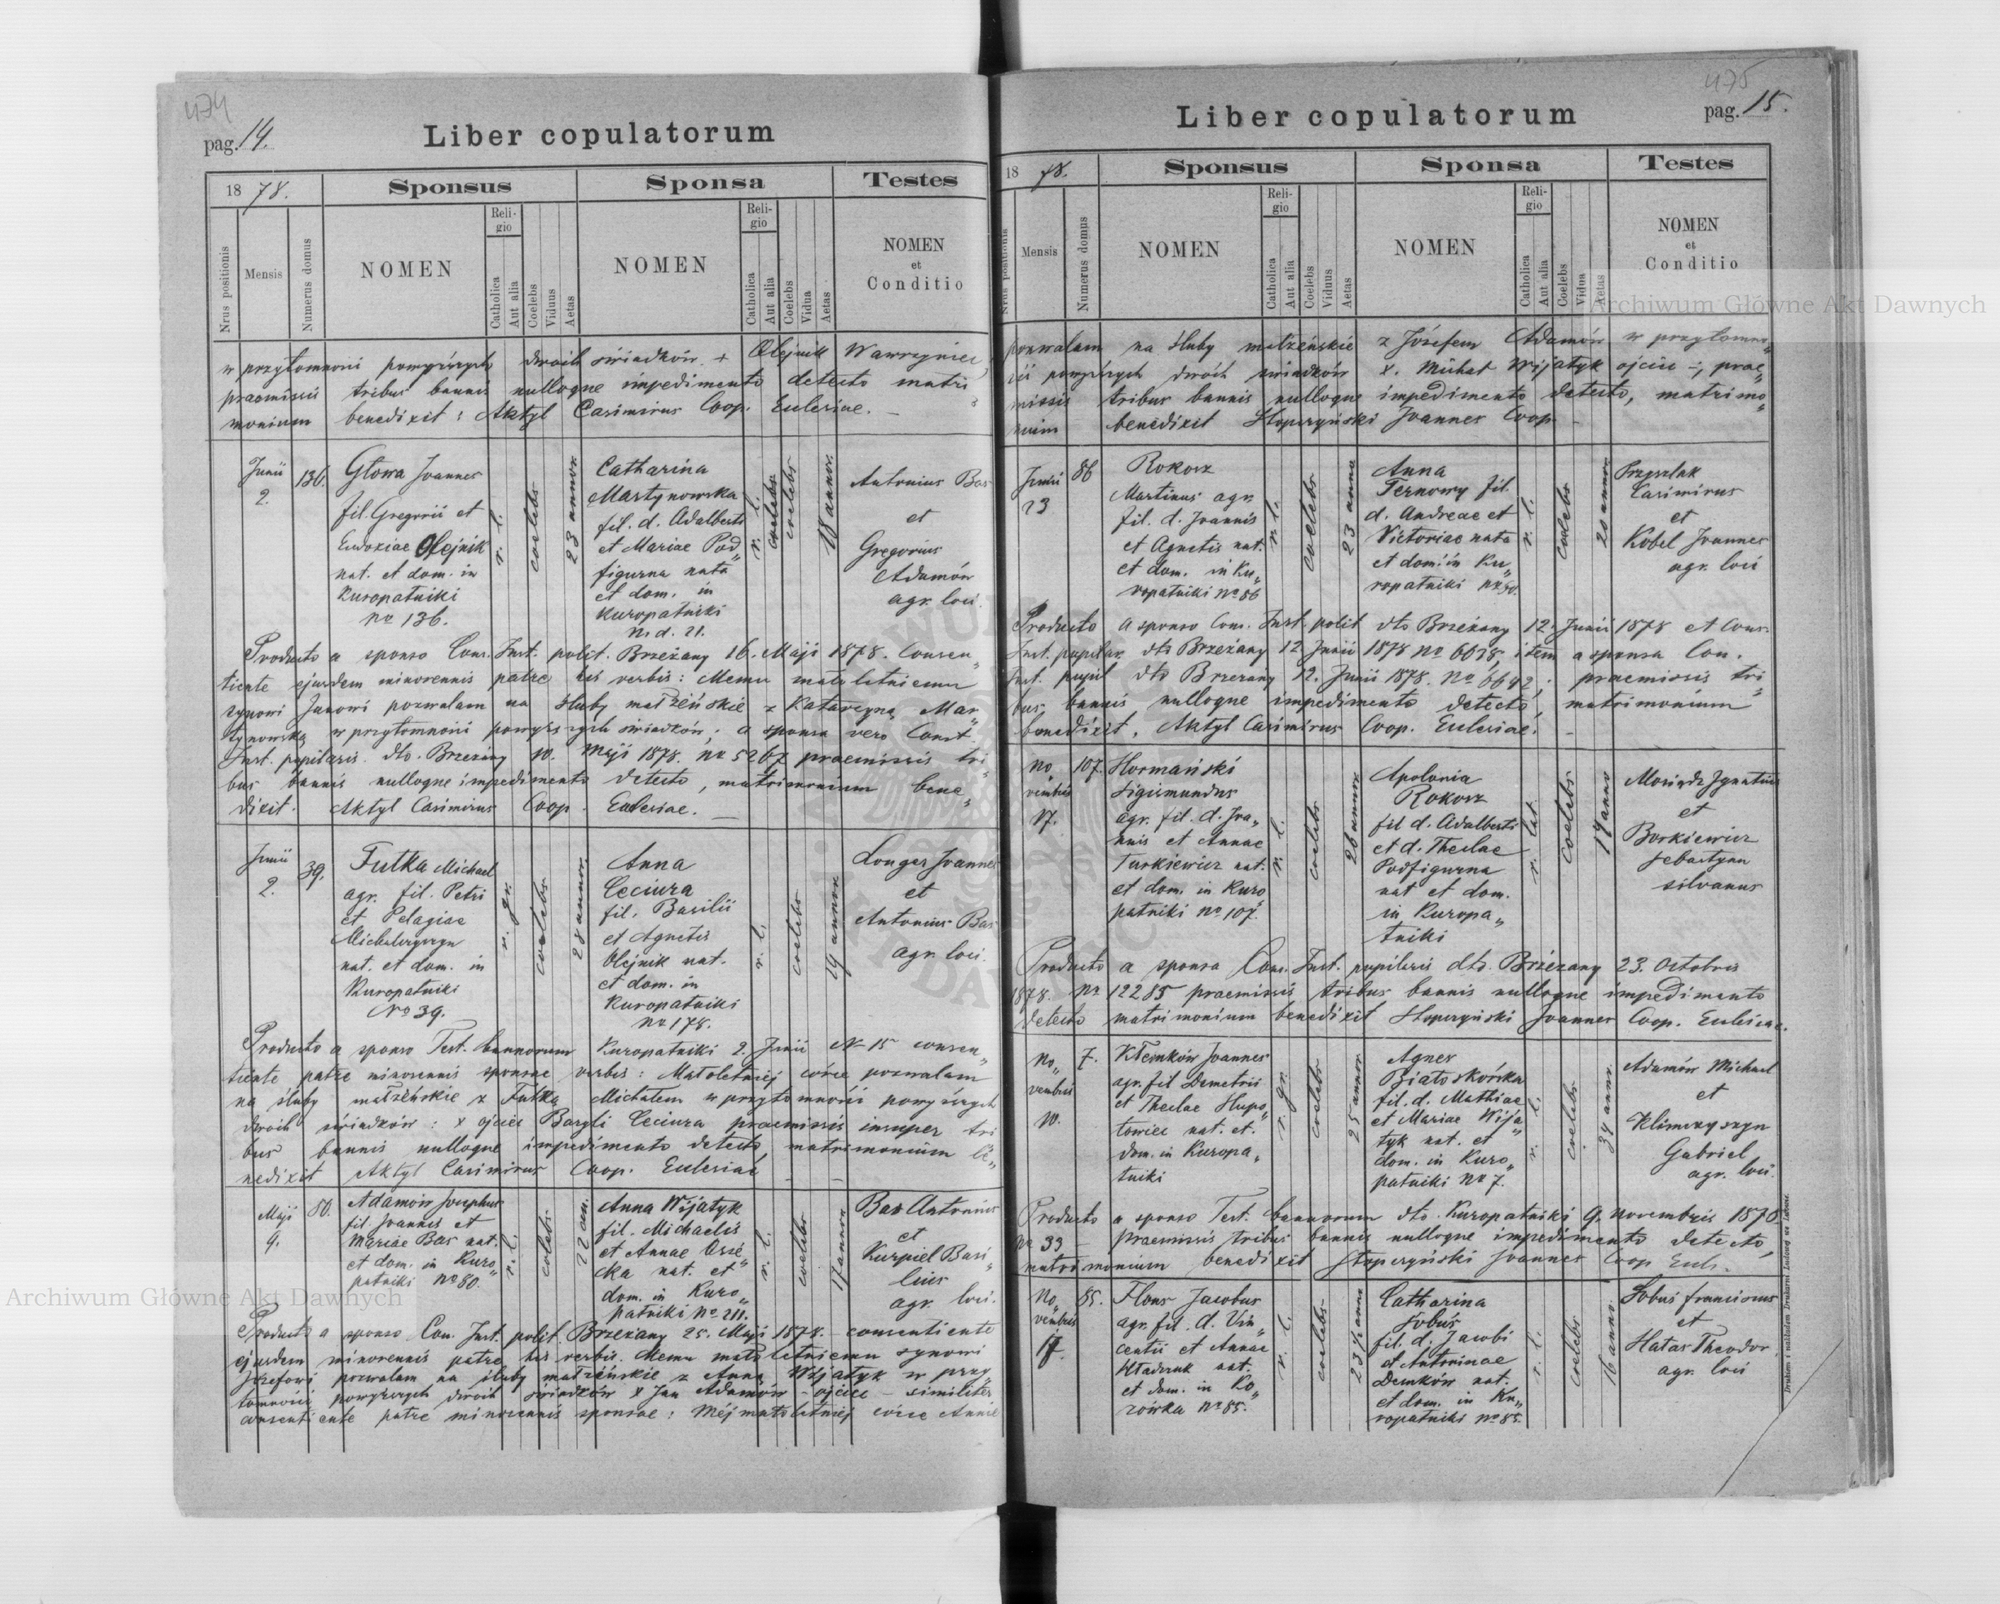 474
pag. 14.
Liber copulatorum
1878.
Sponsus
Sponsa
Testes
Nrus positionis
Mensis
Numerus domus
NOMEN
Religio
Catholica
Aut alia
Coelebs
Viduus
Aetas
NOMEN
Religio
Catholica
Aut alia
Coelebs
Vidua
Aetas
NOMEN
et
Conditio
w przytomności powyższych dwóch świadków + Olejnik Wawrzyniec
praemissis tribus bannis nulloque impedimento detecto matri
monium benedixit: Aktyl Casimirus Coop. Eulesiae. –
Junii
2.
136.
Głowa Joannes
fil. Gregorii et
Eudoxiae Olejnik
nat. et dom. in
Kuropatniki
No 136.
r. l.
coelebs
23 annor.
Catharina
Martynowska
fil. d. Adalberti
et Mariae Pod„
figurna nata
et dom. in
Kuropatniki
N. d. 21.
r. l.
coelebs
18 annor.
Antonius Bas
et
Gregorius
Adamów
agr. loci.
Producto a sponso Cons. Inst. polit. Brzeżany 16. Maji 1878. Consen„
tiente ejusdem minorennis patre his verbis: Memu małoletniemu
synowi Janowi pozwalam na śluby małżeńskie z Katarzyną Mar„
tynowską w przytomności powyższych świadków; a sponsa vero Const.
Inst. pupilaris dto. Brzeżany 10. Maji 1878. No 5267 praemissis tri„
bus bannis nulloque impedimento detecto, matrimonium bene„
dixit. Aktyl Casimirus Coop. Eulesiae. –
Junii
2.
39.
Futka Michael
agr. fil. Petri
et Pelagiae
Michalczyszyn
nat. et dom. in
Kuropatniki
No 39.
r. gr.
coelebs
28 annor
Anna
Ceciura
fil. Basilii
et Agnetis
Olejnik nat.
et dom. in
Kuropatniki
No 178.
r. l.
coelebs
19 annor
Longer Joannes
et
Antonius Bas
agr. loci.
Producto a sponso Test. bannorum Kuropatniki 2. Junii N 15 consen„
tiente patre minorennis sponsae verbis: Małoletniej córce pozwalam
na śluby małżeńskie z Futką Michałem w przytomności powyższych
dwóch świadków: x ojciec Bazyli Ceciura praemissis insuper tri
bus bannis nulloque impedimento detecto matrimonium be„
nedixit Aktyl Casimirus Coop. Eulesiae
Maji
9.
80.
Adamów Josephus
fil. Joannis et
Mariae Bas nat.
et dom. in Kuro„
patniki No 80.
r. l.
coelebs
22 an.
Anna Wijatyk
fil. Michaelis
et Annae
nat. et
dom. in Kuro„
patniki No 211.
r. l.
coelebs
17 annor
Bas Antonius
et
Kurpiel Basi„
lius
agr. loci.
Producto a sponso Con. Inst. polit. Brzeżany 25. Maji 1878. – consentiente
ejusdem minorennis patre his verbis. Memu małoletniemu synowi
Józefowi pozwalam na śluby małżeńskie z Anną Wijatyk w przy„
tomności powyższych dwóch świadków x Jan Adamów – ojciec – similiter
consentiente patre minorennis sponsae: Mej małoletniej córce Annie
475
pag. 15.
Liber copulatorum
1878.
Sponsus
Sponsa
Testes
Nrus positionis
Mensis
Numerus domus
NOMEN
Religio
Catholica
Aut alia
Coelebs
Viduus
Aetas
NOMEN
Religio
Catholica
Aut alia
Coelebs
Vidua
Aetas
NOMEN
et
Conditio
pozwalam na śluby małżeńskie z Józefem Adamów w przytomno„
ści powyższych dwóch świadków x. Michał Wijatyk ojciec –; prae„
missis tribus bannis nulloque impedimento detecto, matrimo„
nium benedixit Słopczyński Joannes Coop –
Junii
23
86
Rokosz
Martinus agr.
fil. d. Joannis
et Agnetis nat.
et dom. in Ku„
ropatniki No 86
r. l.
coelebs
23 anno
Anna
Ternowy fil.
d. Andreae et
Victoriae nata
et dom: in Ku„
ropatniki No 50.
r. l.
coelebs
20 annor
Przyszlak
Casimirus
et
Kobel Joannes
agr. loci
Producto a sponso Cons. Inst. polit dto Brzeżany 12. Junii 1878 et Cons.
Inst. pupilar dto Brzeżany 12 Junii 1878 No 6638, item a sponsa Con.
Inst. pupil dto Brzeżany 12. Junii 1878. No 6642; praemissis tri„
bus, bannis nulloque impedimento detecto, matrimonium
benedixit, Aktyl Casimirus Coop. Eulesiae. –
No„
vembris
17.
107.
Hormański
Sigismundus
agr. fil. d. Joa„
nnis et Annae
Turkiewicz nat.
et dom. in Kuro
patniki No 107.
r. l.
coelebs
28 annor
Apolonia
Rokosz
fil d. Adalberti
et d. Theclae
Podfigurna
nat et dom.
in Kuropa„
tniki
r. lat.
coelebs
19 anno
Mosiądz Ignatius
et
Borkiewicz
Sebastyan
silvanus
Producto a sponsa Cons. Inst. pupilaris dto. Brzeżany 23. Octobris
1878. No 12285 praemissis tribus bannis nulloque impedimento
detecto matrimonium benedixit Słopczyński Joannes Coop. Eulesiae.
No„
vembris
10.
7.
Klemków Joannes
agr. fil Demetrii
et Theclae Hupo„
towicz nat. et.
dom. in Kuropa„
tniki
r. gr.
coelebs
25 annor
Agnes
Białoskórska
fil. d. Mathiae
et Mariae Wija„
tyk nat. et
dom. in Kuro„
patniki No 7.
r. l.
coelebs
34 annr.
Adamów Michael
et
Klimczyszyn
Gabriel
agr. loci.
Producto a sponso Test. bannorum dto. Kuropatniki 9. Novembris 1878
No 33 – praemissis tribus bannis nulloque impedimento detecto,
matrimonium benedixit Słopczyński Joannes Coop Eccls.
No„
vembris
17.
85.
Flons Jacobus
agr. fil. d. Vin„
centii et Annae
Kładczuk nat.
et dom. in Ko„
zówka No 85.
r. l.
coelebs
23 1/2 anno
Catharina
Sobus
fil. d. Jacobi
et Antoninae
Demków nat.
et dom. in Ku„
ropatniki No 85.
r. l.
coelebs
16 anno.
Sobus franciscus
et
Hatas Theodor.
agr. loci
Drukiem i nakładem Drukarni Ludowej we Lwowie.
Archiwum Główne Akt Dawnych
Archiwum Główne Akt Dawnych